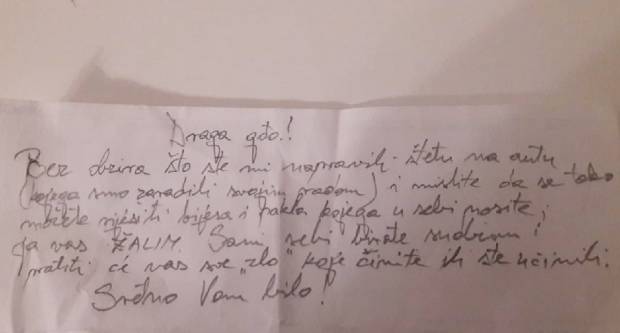 Draga gđo.!
Bez obzira što ste mi napravili štetu na autu
(kojega smo zaradili svojim radom) i mislite da se tako
možete riješiti bijesa i pakla kojega u sebi nosite,
ja vas ŽALIM. Sami sebi birate sudbinu!
pratiti će vas sve "zlo" koje činite ili ste učinili.
Sretno Vam bilo!